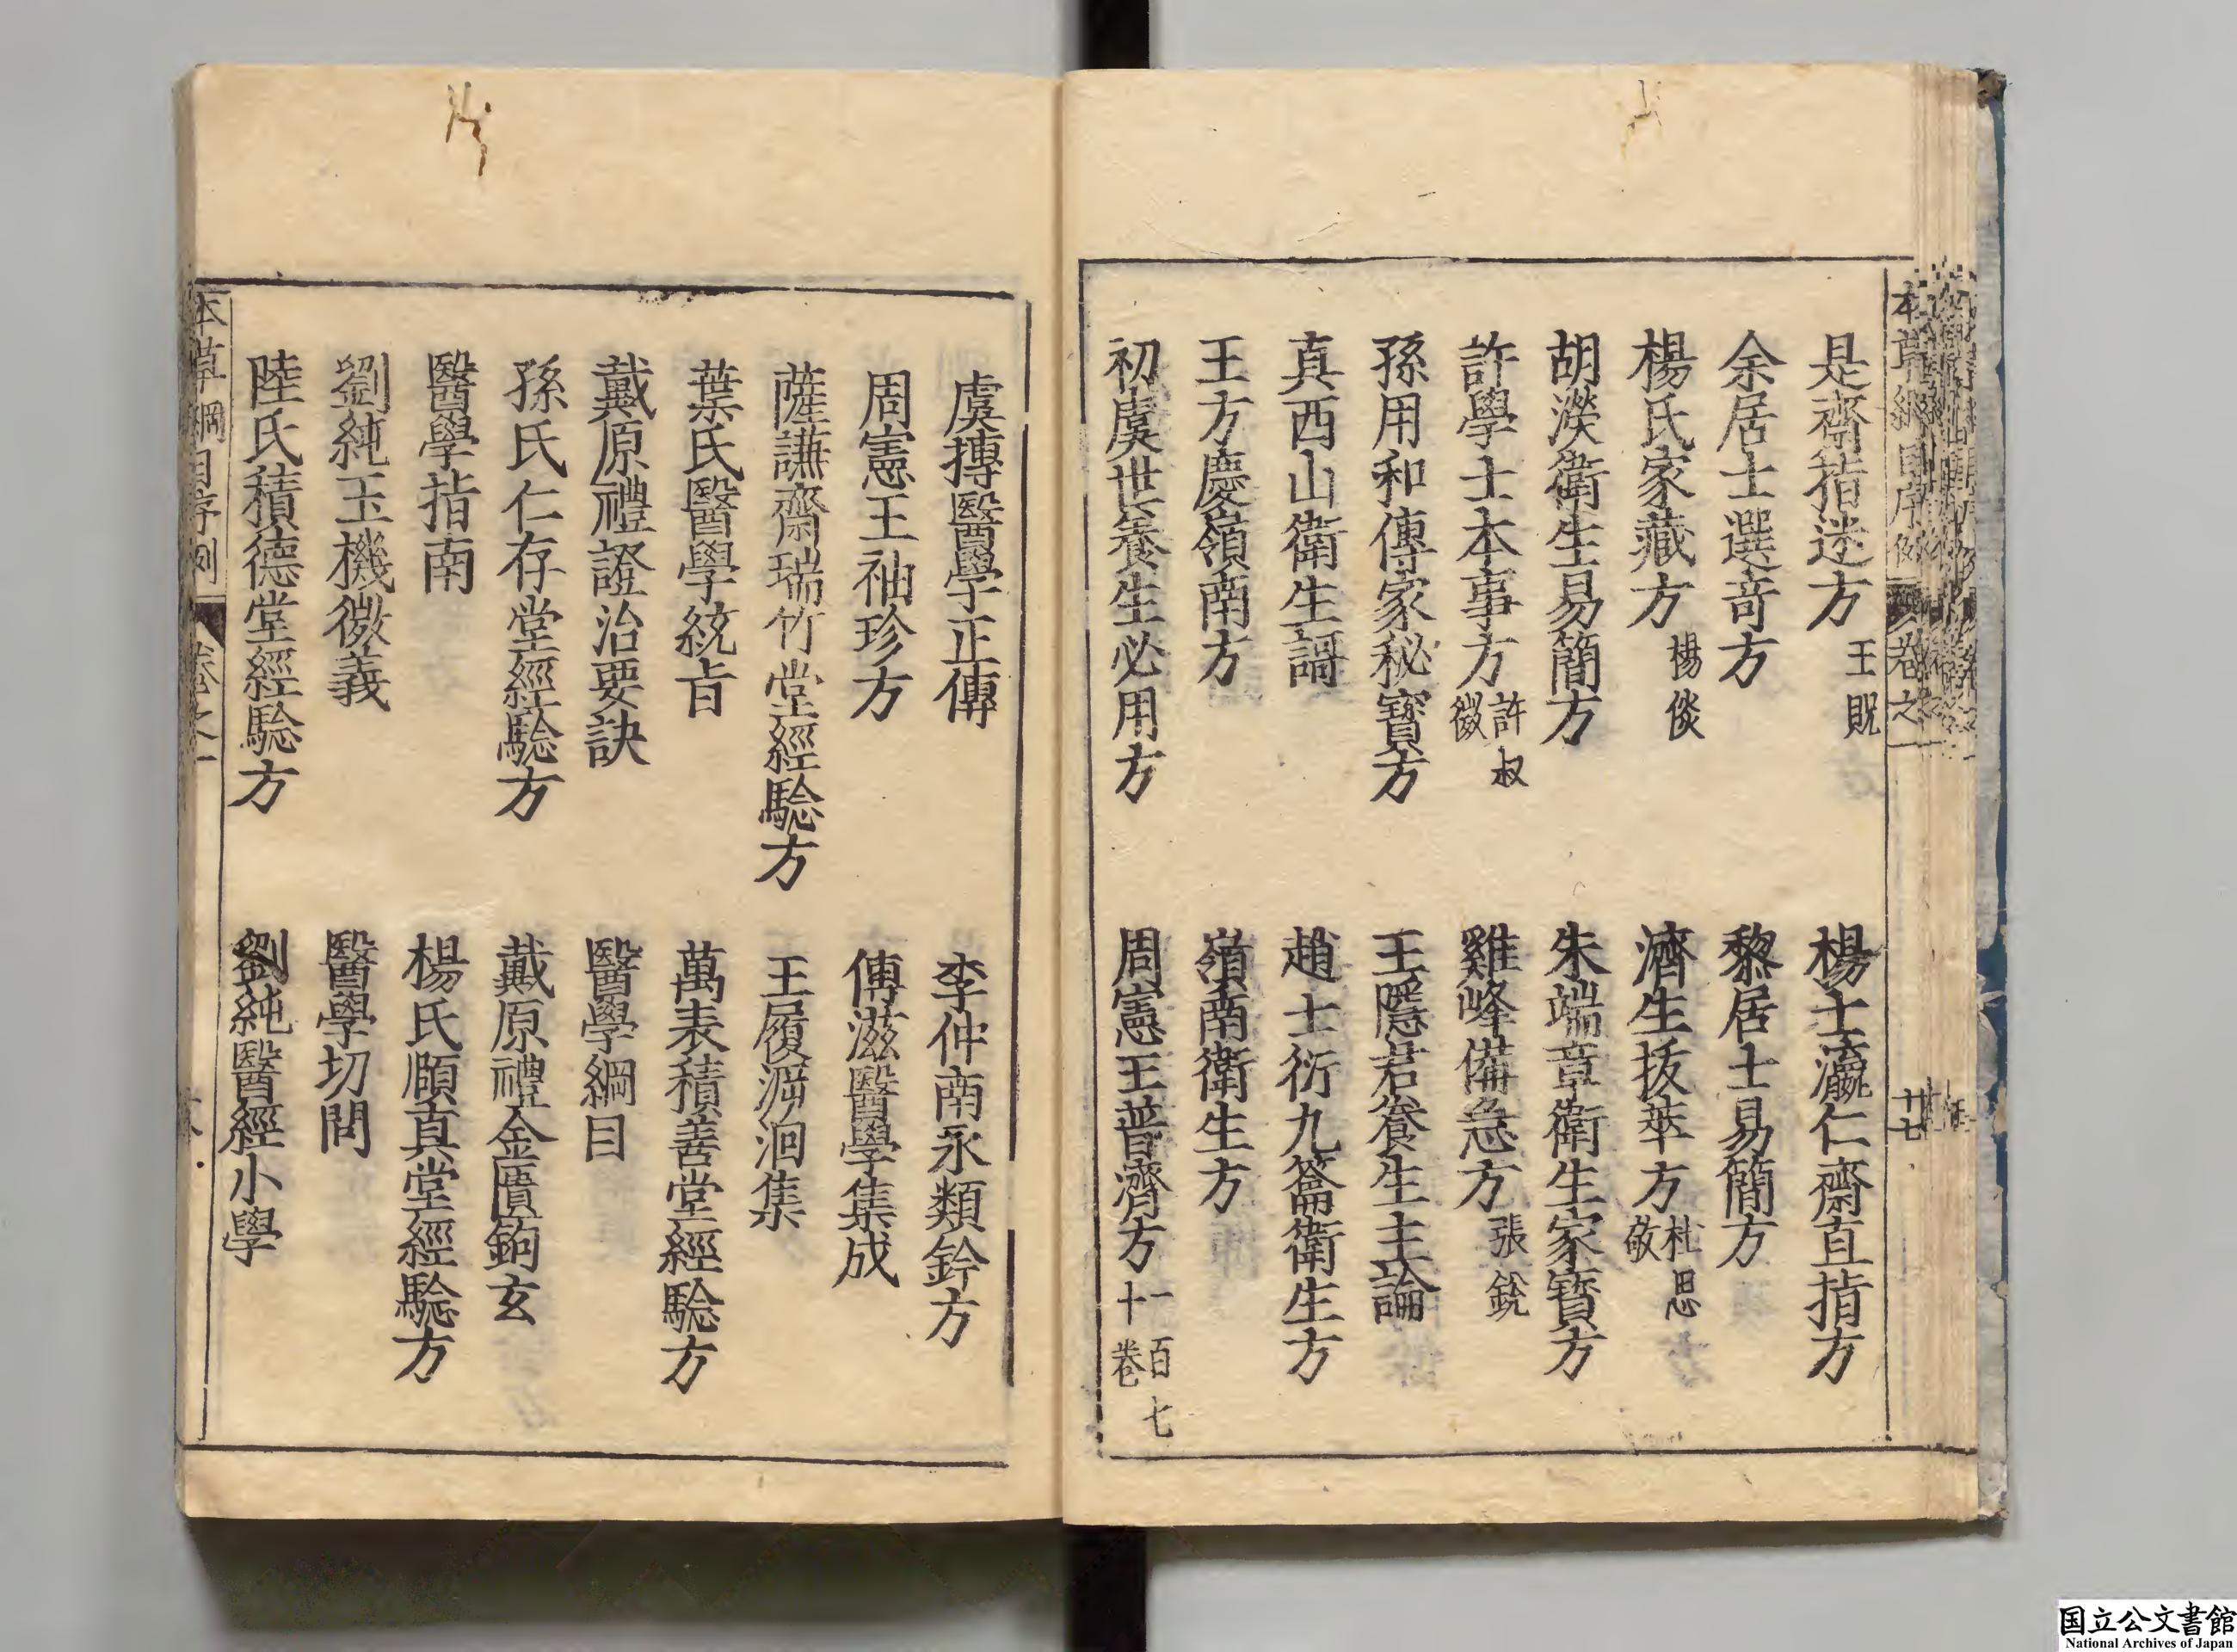 本草綱目序例 卷之一 廿七
是齋指迷方 王貺 楊士瀛仁齋直指方
余居士選竒方 黎居士易簡方
楊氏家藏方 楊倓 濟生拔萃方 杜思敬
胡濙衛生易簡方 朱端章衛生家寳方
許學士本事方 許叔微 雞峰備急方 張銳
孫用和傳家秘寳方 王隱君養生主論
真西山衛生謌 趙士衍九籥衛生方
王方慶嶺南方 嶺南衛生方
初虞世養生必用方 周憲王普濟方 一百七十卷
虞摶醫學正傳 李仲南永類鈐方
周憲王袖珍方 傅滋醫學集成
薩謙齋瑞竹堂經驗方 王履泝洄集
葉氏醫學統旨 萬表積善堂經驗方
戴原禮證治要訣 醫學綱目
孫氏仁存堂經驗方 戴原禮金匱鉤玄
醫學指南 楊氏頤真堂經驗方
劉純玉機微義 醫學切問
陸氏積德堂經驗方 劉純醫經小學
本草綱目序例 卷之一
国立公文書館
National Archives of Japan